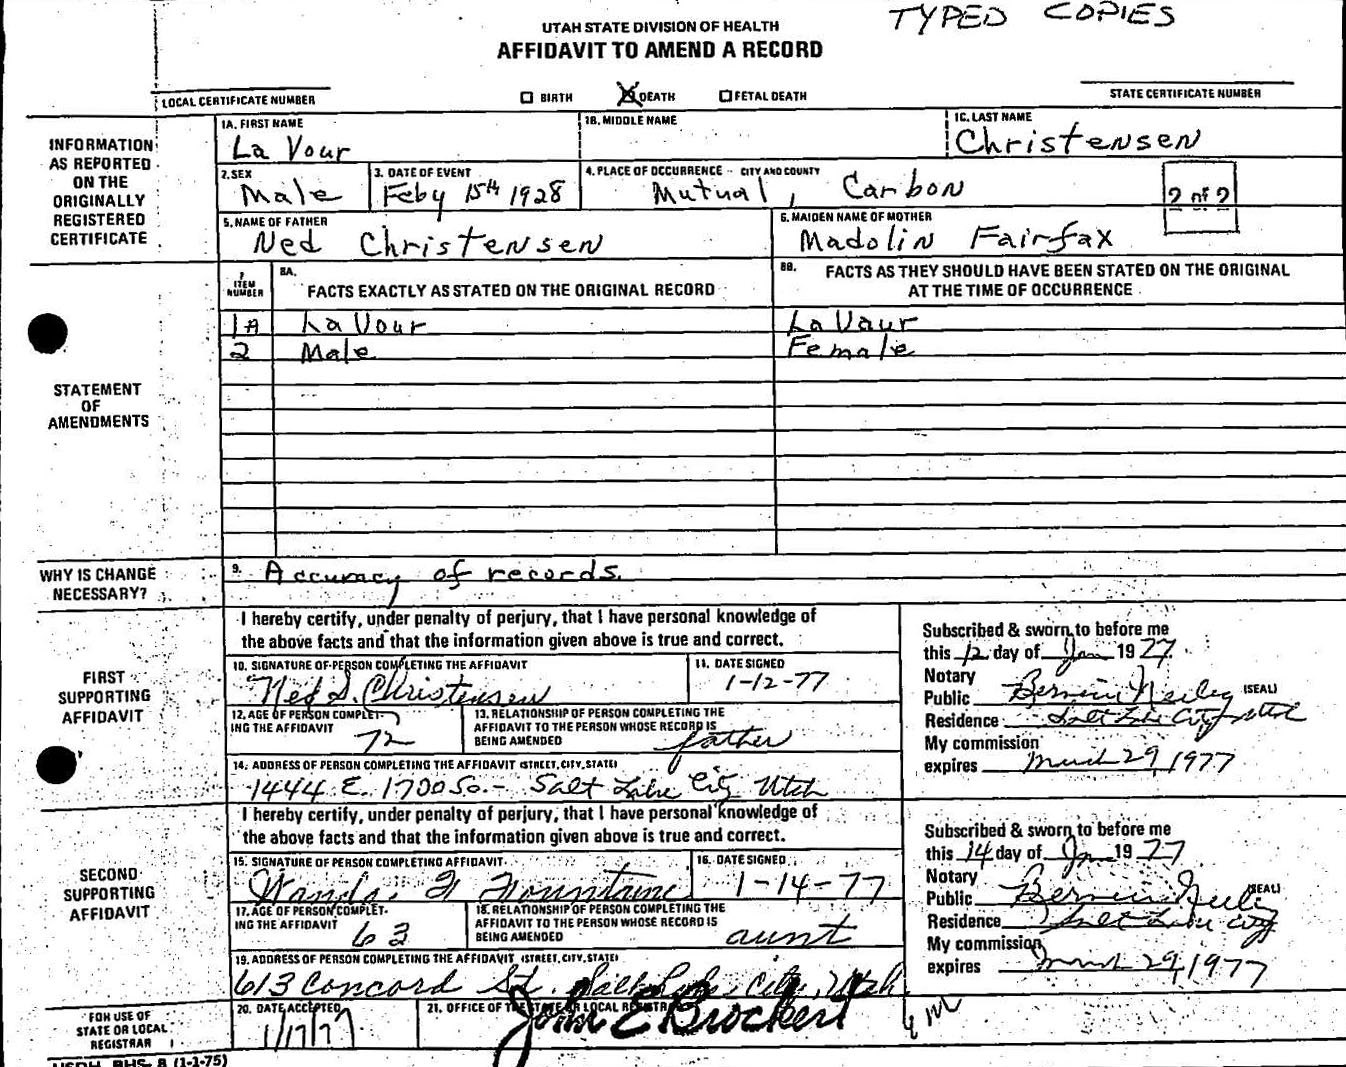 TYPED COPIES
UTAH STATE DIVISION OF HEALTH
AFFIDAVIT TO AMEND A RECORD
LOCAL CERTIFICATE NUMBER
BIRTH
DEATH
FETAL DEATH
STATE CERTIFICATE NUMBER
INFORMATION
AS REPORTED
ON THE
ORIGINALLY
REGISTERED
CERTIFICATE
1A. FIRST NAME
La Vour
1B. MIDDLE NAME
1C. LAST NAME
Christensen
2. SEX
Male
3. DATE OF EVENT
Feby 15th 1928
4. PLACE OF OCCURRENCE - CITY AND COUNTY
Mutual, Carbon
2 of 2
5. NAME OF FATHER
Ned Christensen
6. MAIDEN NAME OF MOTHER
Madolin Fairfax
STATEMENT
OF
AMENDMENTS
7
ITEM
NUMBER
8A.
FACTS EXACTLY AS STATED ON THE ORIGINAL RECORD
8B. FACTS AS THEY SHOULD HAVE BEEN STATED ON THE ORIGINAL
AT THE TIME OF OCCURRENCE
1A La Vour La Vaur
2 Male Female
WHY IS CHANGE
NECESSARY?
9. Accuracy of records.
FIRST
SUPPORTING
AFFIDAVIT
I hereby certify, under penalty of perjury, that I have personal knowledge of
the above facts and that the information given above is true and correct.
10. SIGNATURE OF PERSON COMPLETING THE AFFIDAVIT
Ned S. Christensen
11. DATE SIGNED
1-12-77
12. AGE OF PERSON COMPLET-
ING THE AFFIDAVIT
72
13. RELATIONSHIP OF PERSON COMPLETING THE
AFFIDAVIT TO THE PERSON WHOSE RECORD IS
BEING AMENDED
father
14. ADDRESS OF PERSON COMPLETING THE AFFIDAVIT (STREET, CITY, STATE)
1444 E. 1700 So. - Salt Lake City Utah
Subscribed & sworn to before me
this 12 day of Jan 1977
Notary
Public (SEAL)
Residence Salt Lake City, Utah
My commission
expires March 29, 1977
SECOND
SUPPORTING
AFFIDAVIT
I hereby certify, under penalty of perjury, that I have personal knowledge of
the above facts and that the information given above is true and correct.
15. SIGNATURE OF PERSON COMPLETING AFFIDAVIT
Wanda F Fountaine
16. DATE SIGNED
1-14-77
17. AGE OF PERSON COMPLET-
ING THE AFFIDAVIT
63
18. RELATIONSHIP OF PERSON COMPLETING THE
AFFIDAVIT TO THE PERSON WHOSE RECORD IS
BEING AMENDED
aunt
19. ADDRESS OF PERSON COMPLETING THE AFFIDAVIT (STREET, CITY, STATE)
613 Concord St. Salt Lake City, Utah
Subscribed & sworn to before me
this 14 day of Jan 1977
Notary
Public (SEAL)
Residence Salt Lake City
My commission
expires March 29, 1977
FOR USE OF
STATE OR LOCAL
REGISTRAR
20. DATE ACCEPTED
1/17/77
21. OFFICE OF THE STATE OR LOCAL REGISTRAR
John E Brockert
USDH BHS-8 (1-1-75)